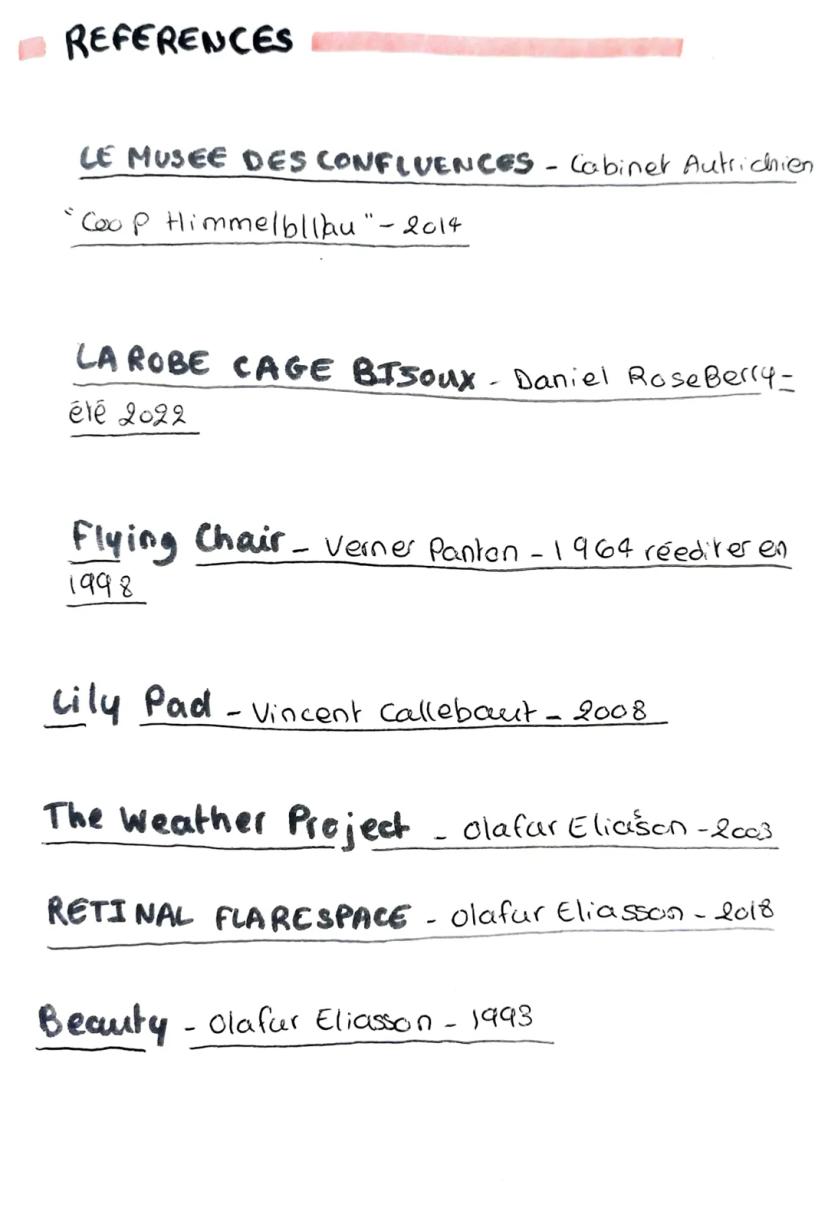 REFERENCES
LE MUSEE DES CONFLUENCES - Cabinet Autrichien
"Coop Himmelbllau" - 2014
LA ROBE CAGE BISOUX - Daniel RoseBerry -
été 2022
Flying Chair - Verner Panton - 1964 réediter en
1998
Lily Pad - Vincent Callebaut - 2008
The Weather Project - Olafur Eliasson - 2003
RETINAL FLARESPACE - Olafur Eliasson - 2018
Beauty - Olafur Eliasson - 1993